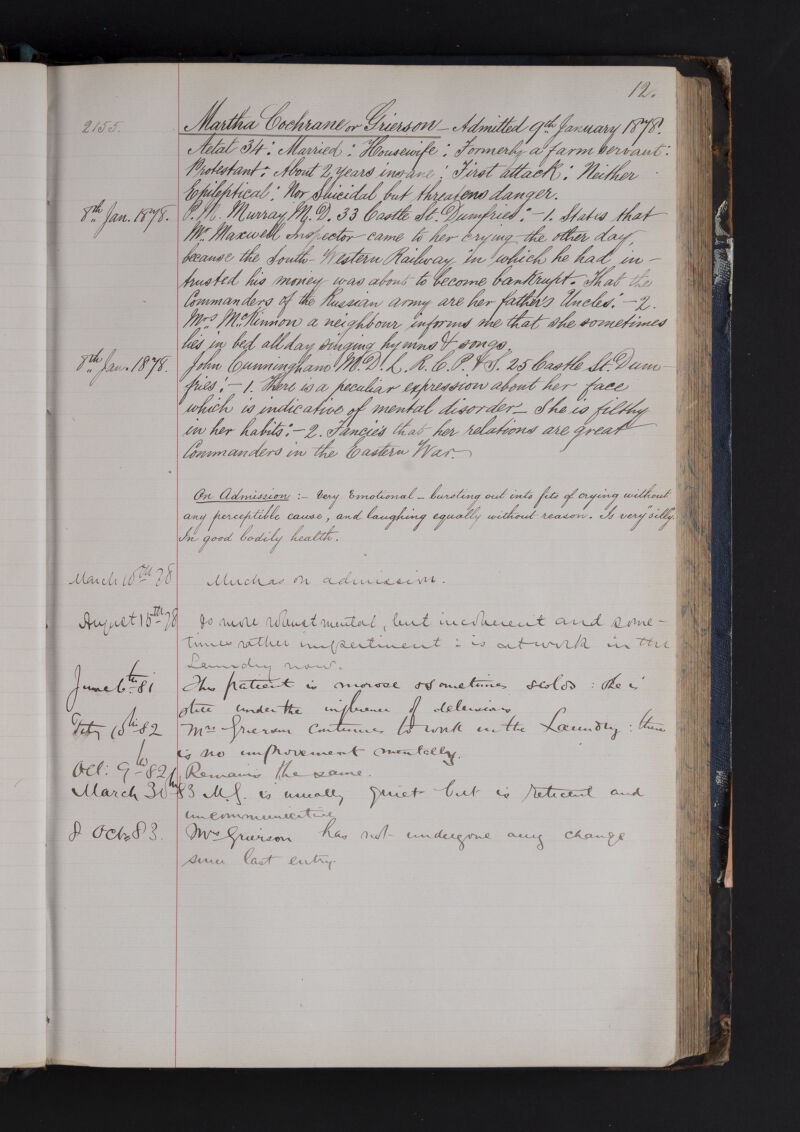 12.
2155. Martha Cochrane or Grierson – Admitted 9th January 1878.
Aetat 34: Married: Housewife: Formerly a farm Servant:
Protestant: About 2 years insane: First attack: Neither
Epileptical: Nor Suicidal but threatens danger.
8th Jan. 1878. P. M. Murray M.D. 33 Castle St. Dumfries:– 1. States that
Mr. Maxwell Inspector came to her crying the other day,
because the South-Western Railway in which he had in-
trusted his money was about to become bankrupt. That the
Commanders of the Russian army are her father's Uncles:– 2.
Mrs. McKinnon a neighbour informs me that she sometimes
lies in bed all day singing hymns & songs.
8th Jan. 1878. John Cunningham M.D. L.R.C.P.&S. 25 Castle St. Dum-
fries:– 1. There is a peculiar expression about her face
which is indicative of mental disorder – She is filthy
in her habits:– 2. Fancies that her relations are great
Commanders in the Eastern War.
On Admission:– Very Emotional – bursting out into fits of crying without
any perceptible cause, and laughing equally without reason. Is very "silly.
In good bodily health.
March 10th 78 Much as on admission.
August 15th 78 Is more robust mental, but incoherent and some-
times rather impertinent: is at work in the
Laundry now.
June 6th 81 This patient is morose & sometimes scolds: She is
still under the influence of delusions
10th 82 Mrs Grierson continues to work in the Laundry: there
is no improvement mentally.
Oct: 9th 82 Remains the same.
March 30th 83 M.G. is usually quiet but is reticent and
uncommunicative
8 Octr 83. Mrs Grierson has not undergone any change
since last entry.